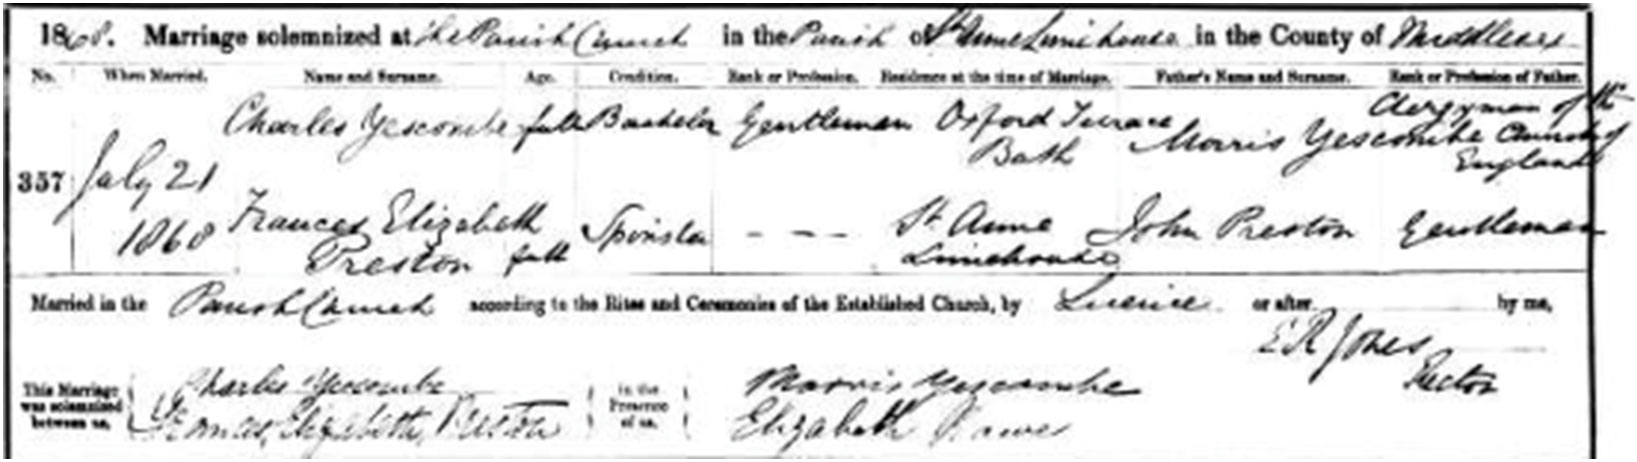 1868. Marriage solemnized at the Parish Church in the Parish of St Anne Limehouse in the County of Middlesex
No. When Married. Name and Surname. Age. Condition. Rank or Profession. Residence at the time of Marriage. Father's Name and Surname. Rank or Profession of Father.
357 July 21 1868 Charles Yescombe full Bachelor Gentleman Oxford Terrace Bath Morris Yescombe Clergyman of the Church of England
Frances Elizabeth Preston full Spinster - - - St Anne Limehouse John Preston Gentleman
Married in the Parish Church according to the Rites and Ceremonies of the Established Church, by Licence or after by me,
E R Jones
Rector
This Marriage was solemnized between us, Charles Yescombe Frances Elizabeth Preston in the Presence of us, Morris Yescombe Elizabeth